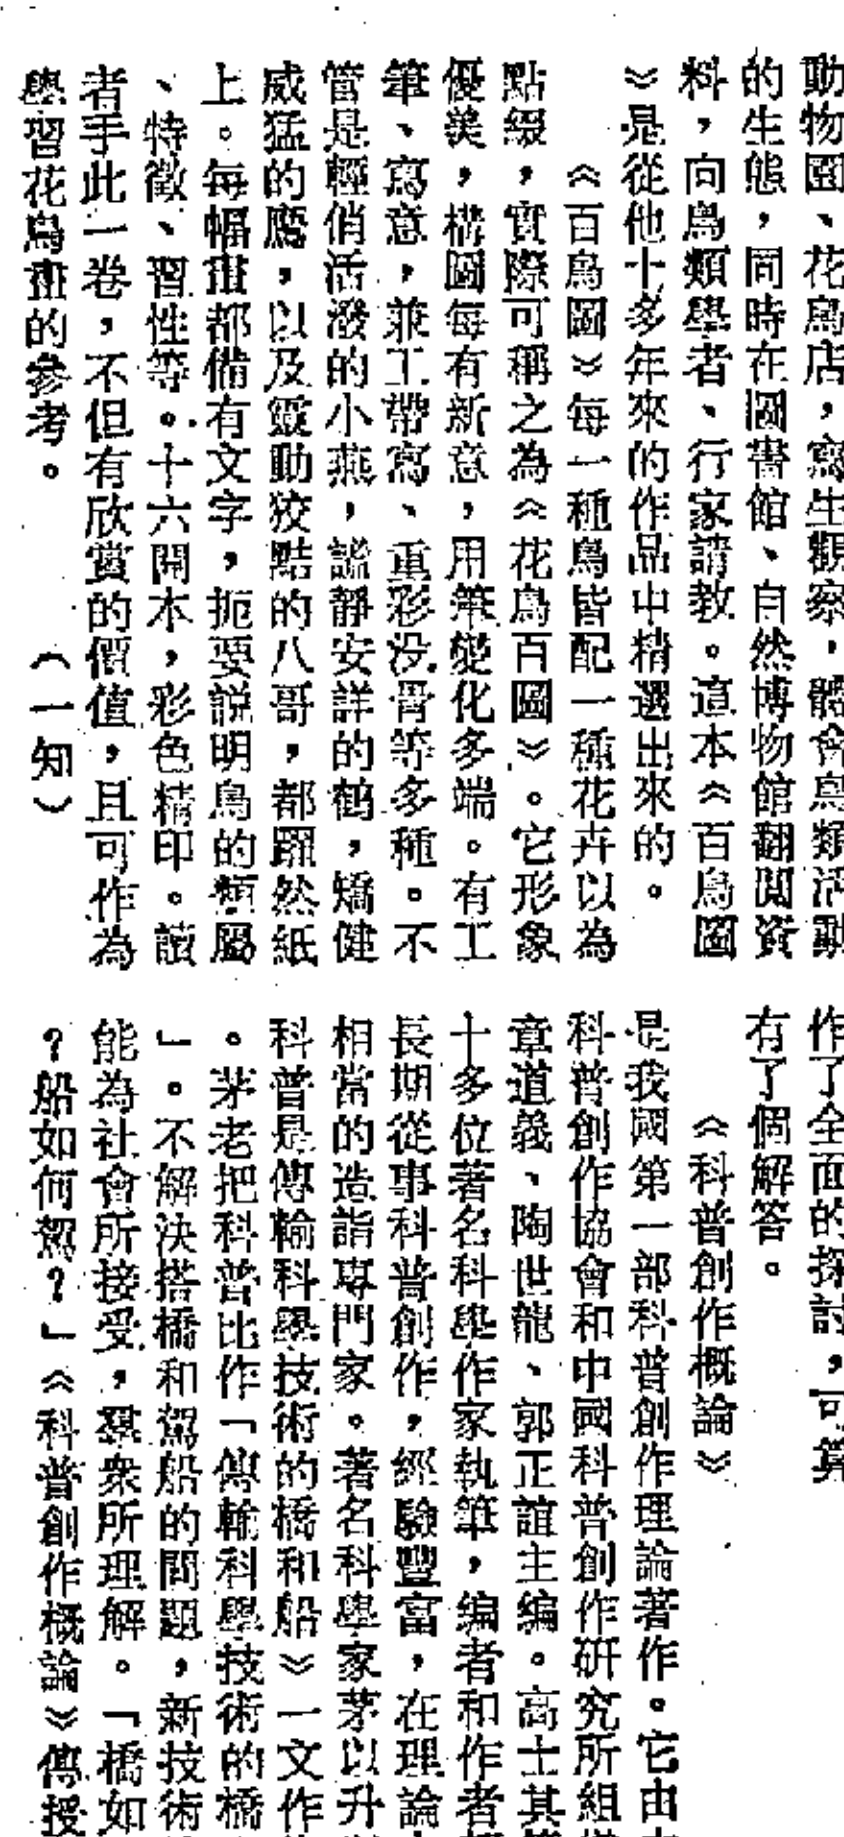 動物園、花鳥店,寫生觀察,體會鳥類活動
的生態,同時在圖書館、自然博物館翻閱資
料,向鳥類學者、行家請教。這本《百鳥圖
》是從他十多年來的作品中精選出來的。
《百鳥圖》每一種鳥皆配一種花卉以為
點綴,實際可稱之為《花鳥百圖》。它形象
優美,構圖每有新意,用筆變化多端。有工
筆、寫意,兼工帶寫、重彩没骨等多種。不
管是輕俏活潑的小燕,謐靜安詳的鶴,矯健
威猛的鷹,以及靈動狡黠的八哥,都躍然紙
上。每幅畫都備有文字,扼要説明鳥的類屬
、特徵、習性等。十六開本,彩色精印。讀
者手此一卷,不但有欣賞的價值,且可作為
學習花鳥畫的參考。 (一知)
作了全面的探討,可算
有了個解答。
《科普創作概論》
是我國第一部科普創作理論著作。它由
科普創作協會和中國科普創作研究所組
章道義、陶世龍、郭正誼主編。高士其
十多位著名科學作家執筆,編者和作者
長期從事科普創作,經驗豐富,在理論
相當的造詣專門家。著名科學家茅以升
科普是傳輸科學技術的橋和船》一文作
。茅老把科普比作「傳輸科學技術的橋
」。不解決搭橋和駕船的問題,新技術
能為社會所接受,羣衆所理解。「橋如
?船如何駕?」《科普創作概論》傳授